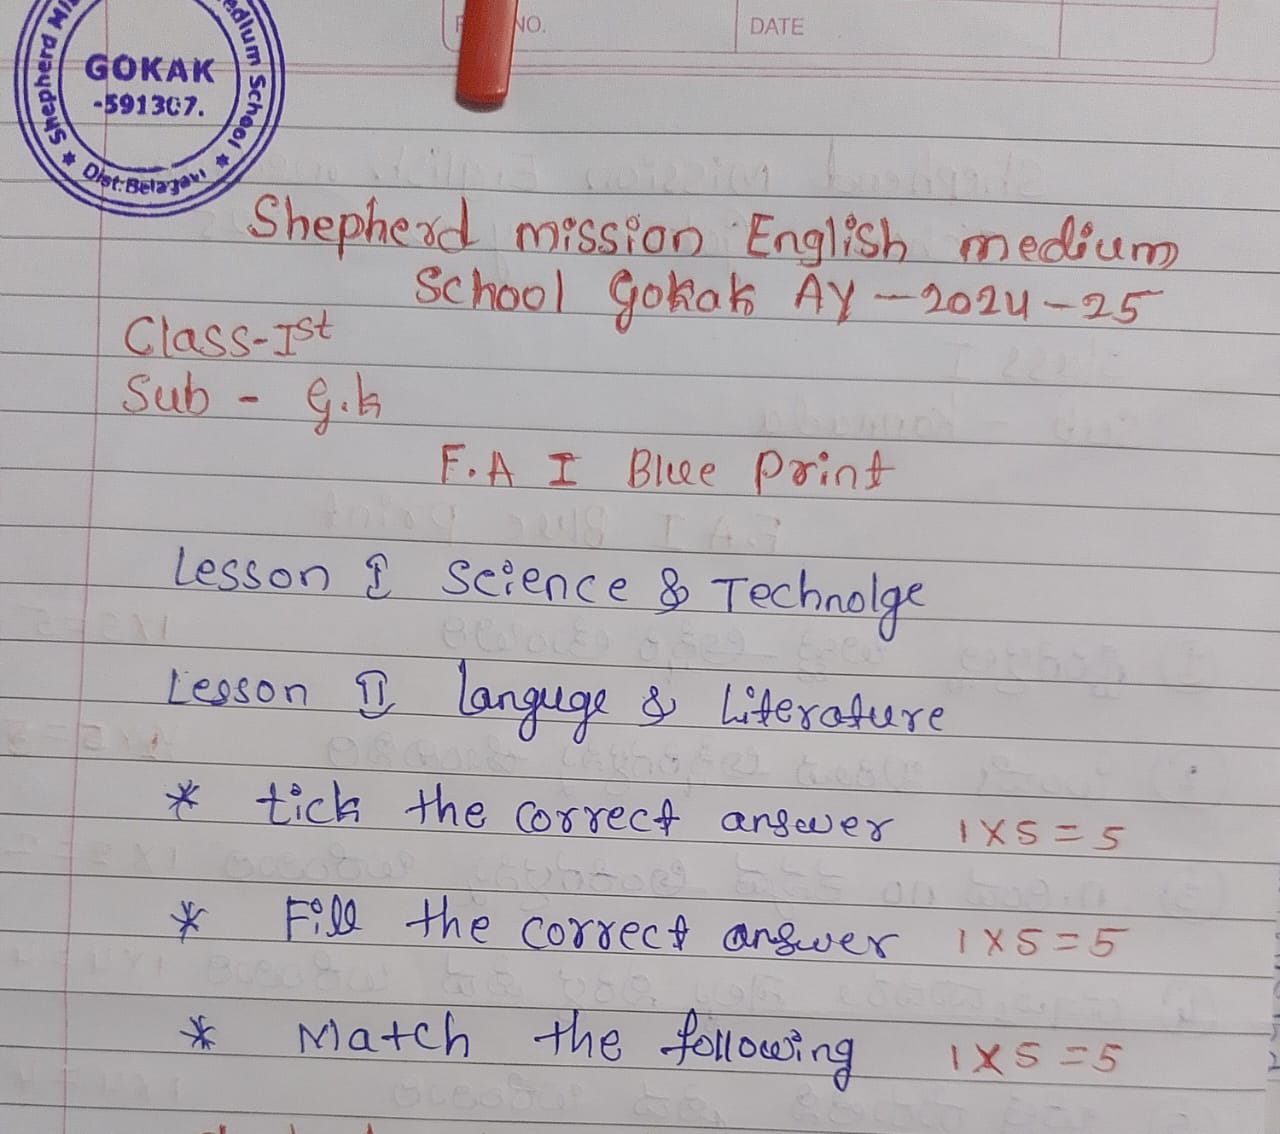 Shepherd Mi
edium School
GOKAK
-591307.
Dist:Belagavi
NO.
DATE
Shepherd mission English medium
School Gokak AY - 2024-25
Class-Ist
Sub - G.k
F.A I Blue Print
Lesson I Science & Technolge
Lesson II Languge & Literature
* tick the correct answer 1 X 5 = 5
* Fill the correct answer 1 X 5 = 5
* Match the following 1 X 5 = 5